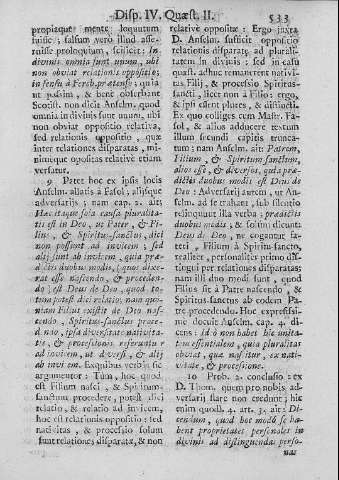 Disp. IV. Quæst. II.
533
propiæque mente loquutum
fuisse; falsum verò illud asse-
ruisse proloquium, scilicet: In
divinis omnia sunt unum, ubi
non obviat relationis oppositio;
in sensu à Ferch. prætenso; quia
ut passim, & bene observant
Scotist. non dicit Anselm. quod
omnia in divinis sunt unum, ubi
non obviat oppositio relativa,
sed relationis oppositio, quæ
inter relationes disparatas, mi-
nimeque oppositas relativè etiam
versatur.
9 Patet hoc ex ipsis locis
Anselm. allatis à Fasol; aliisque
adversariis; nam cap. 2. ait:
Hæc itaque sola causa pluralita-
tis est in Deo, ut Pater, & Fi-
lius, & Spiritus-sanctus, dici
non possint ad invicem, sed
alij sint ab invicem, quia præ-
dictis duobus modis, quos dixe-
rat esse nascendo, & proceden-
do, est Deus de Deo, quod to-
tum potest dici relatio, nam quo-
niam Filius existit de Deo nas-
cendo, Spiritus-sanctus proce-
dendo, ipsa diversitate nativita-
tis, & processionis referuntur
ad invicem, ut diversi, & alij
ab invicem. Ex quibus verbis sic
argumentor: Tùm, hoc quod
est Filium nasci, & Spiritum-
sanctum procedere, potest dici
relatio, & relatio ad invicem,
hoc est relationis oppositio: sed
nativitas, & processio solùm
sunt relationes disparatæ, & non
relativè oppositæ: Ergo juxta
D. Anselm. sufficit oppositio
relationis disparatæ ad plurali-
tatem in divinis: sed in casu
quæst. adhuc remaneret nativi-
tas Filij, & processio Spiritus-
sancti, licet non à Filio: ergo,
& ipsi essent plures, & distincti.
Ex quo colliges cum Mastr. Fa-
sol, & alios adducere textum
illum secundi capitis trunca-
tum; nam Anselm. ait: Patrem,
Filium, & Spiritum-sanctum,
alios esse, & diversos, quia præ-
dictis duobus modis est Deus de
Deo: Adversarij autem, ut An-
selm. ad se trahant, sub silentio
relinquunt illa verba: prædictis
duobus modis, & solùm dicunt:
Deus de Deo, ne cogantur fa-
teri, Filium à Spiritu-sancto,
realiter, personalites primo dis-
tingui per relationes disparatas:
nam illi duo modi sunt, quod
Filius sit à Patre nascendo, &
Spiritus-sanctus ab eodem Pa-
tre procedendo. Hoc expressissi-
mè docuit Anselm. cap. 4. di-
cens: Id à non habet hic unita-
tem essentialem, quia pluralitas
obviat, quæ nascitur, ex nati-
vitate, & processione.
10 Prob. 2. conclusio: ex
D. Thom. quem pro nobis ad-
versarij stare non credunt; hic
enim quodl. 4. art. 3. ait: Di-
cendum, quod hoc modò se ha-
bent proprietates personales in
divinis ad distinguendas perso-
nas